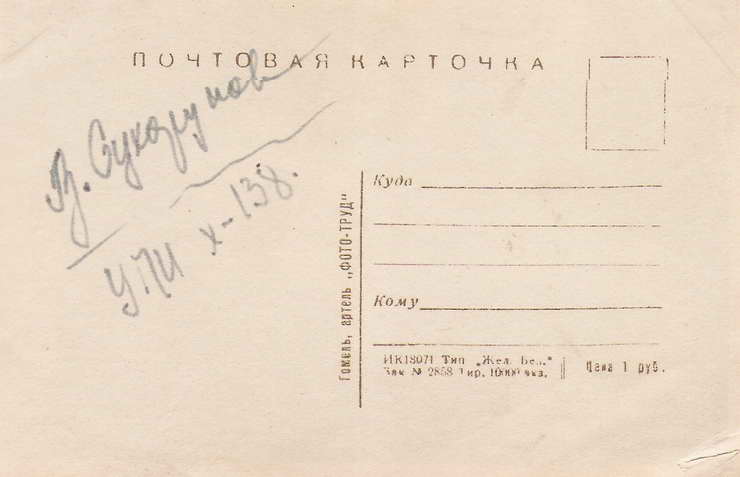 ПОЧТОВАЯ КАРТОЧКА
В. Сухорунов
УПИ х-138.
Куда
Кому
Гомель, артель „ФОТО-ТРУД"
ИК13071 Тип „Жел. Бел."
Зак № 2858 Тир. 10000 экз.
Цена 1 руб.